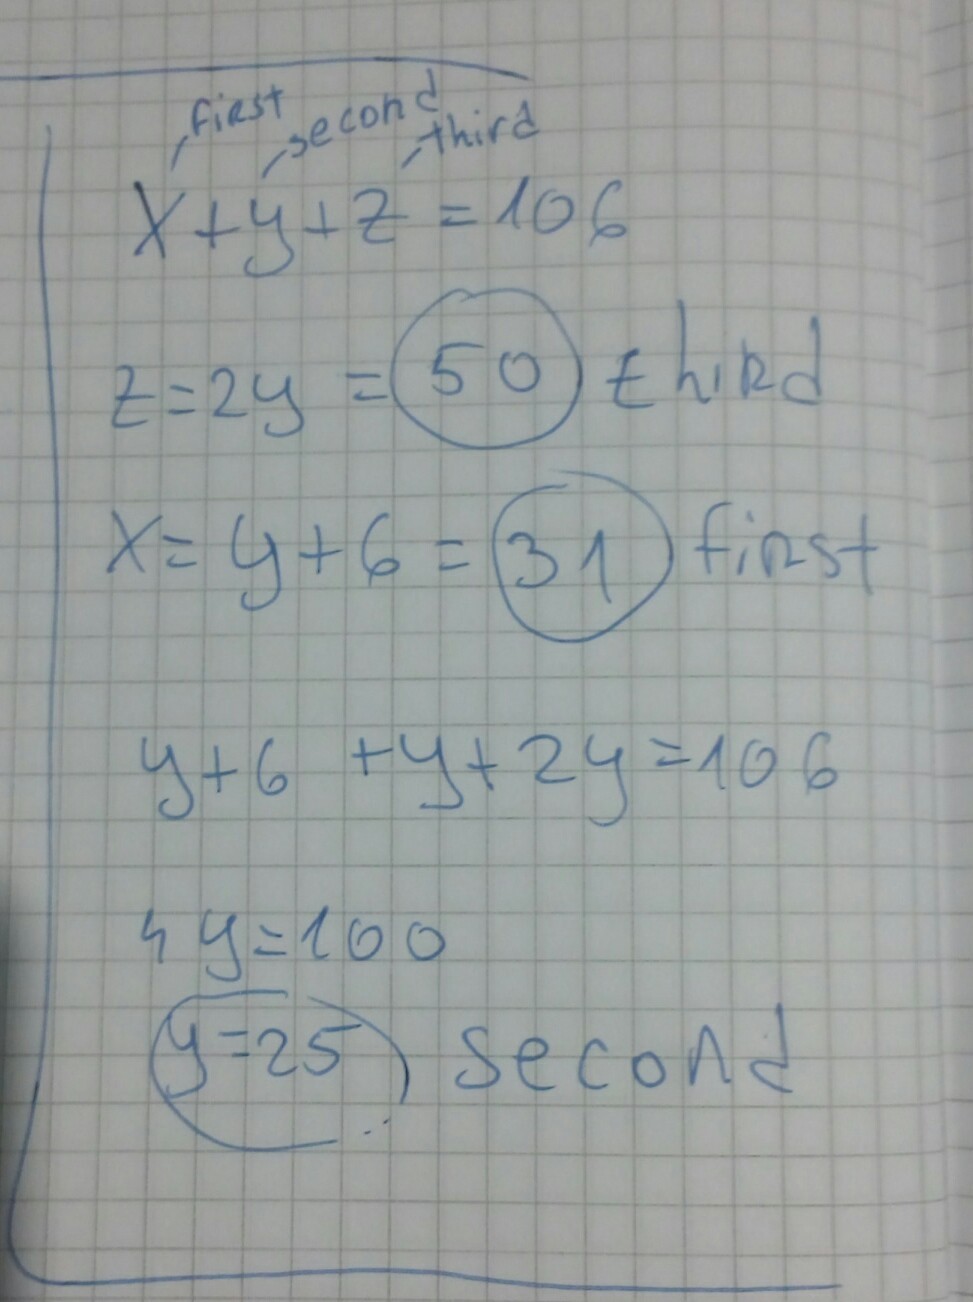 first
second
third
x+y+z=106
z=2y=50 third
x=y+6=31 first
y+6+y+2y=106
4y=100
y=25 second